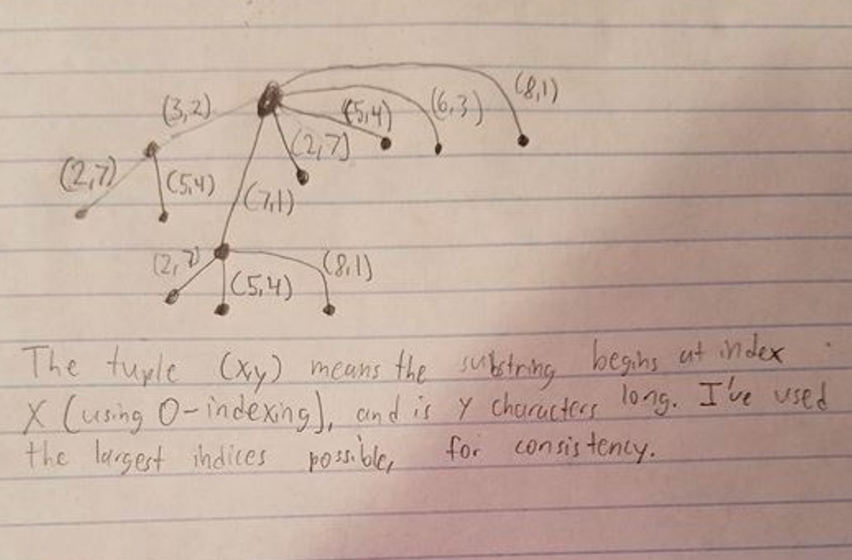 (8,1)
(3,2) (5,4) (6,3)
(2,7)
(2,7) (5,4)
(7,1)
(2,7) (8,1)
(5,4)
The tuple (x,y) means the substring begins at index
X (using 0-indexing), and is y characters long. I've used
the largest indices possible, for consistency.